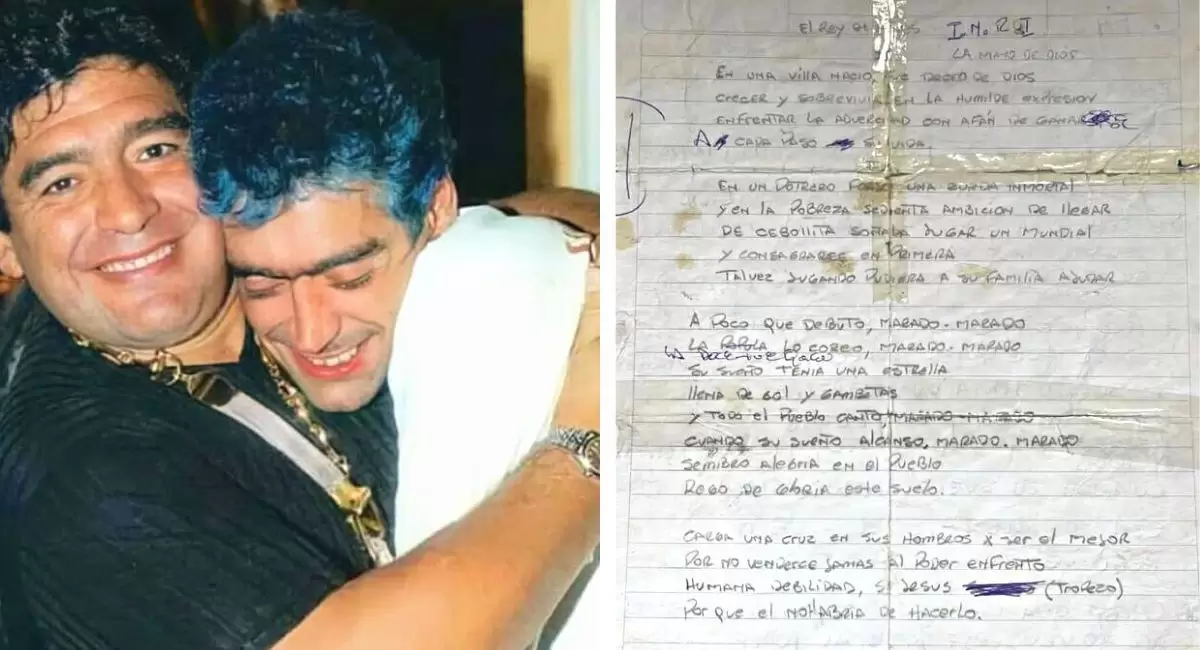 El Rey I.N.RYI
LA MANO DE DIOS
EN UNA VILLA NACIO, FUE DECEO DE DIOS
CRECER Y SOBREVIVIR EN LA HUMILDE EXPRESION
ENFRENTAR LA ADVERCIDAD CON AFÁN DE GANARSE
A CADA PASO SU VIDA.
EN UN POTRERO FORJO UNA ZURDA INMORTAL
Y EN LA POBREZA SEDIENTA AMBICION DE llEGAR
DE CEBOLLITA SOÑABA JUGAR UN MUNDIAl
Y CONSAGRARCE EN PRIMERA
TALVEZ JUGANDO PUDIERA A SU FAMILIA AYUDAR
A POCO QUE DEBUTO, MARADO-MARADO
LA POPULA LO COREO, MARADO-MARADO
LA
SU SUEÑO TENIA UNA ESTRELLA
llENA DE GOL Y GAMBETAS
Y TODO El PUEBLO CANTO, MARADO-MARADO
CUANDO SU SUEÑO ALCANSO, MARADO. MARADO
SEMBRO ALEGRIA EN El PUEBLO
REGO DE GLORIA ESTE SUELO.
CARGA UNA CRUZ EN SUS HOMBROS X SER El MEJOR
POR NO VENDERCE JAMAS Al PODER ENFRENTO
HUMANA DEBILIDAD, SI JESUS (TROPEZO)
POR QUE EL NO HABRIA DE HACERLO.